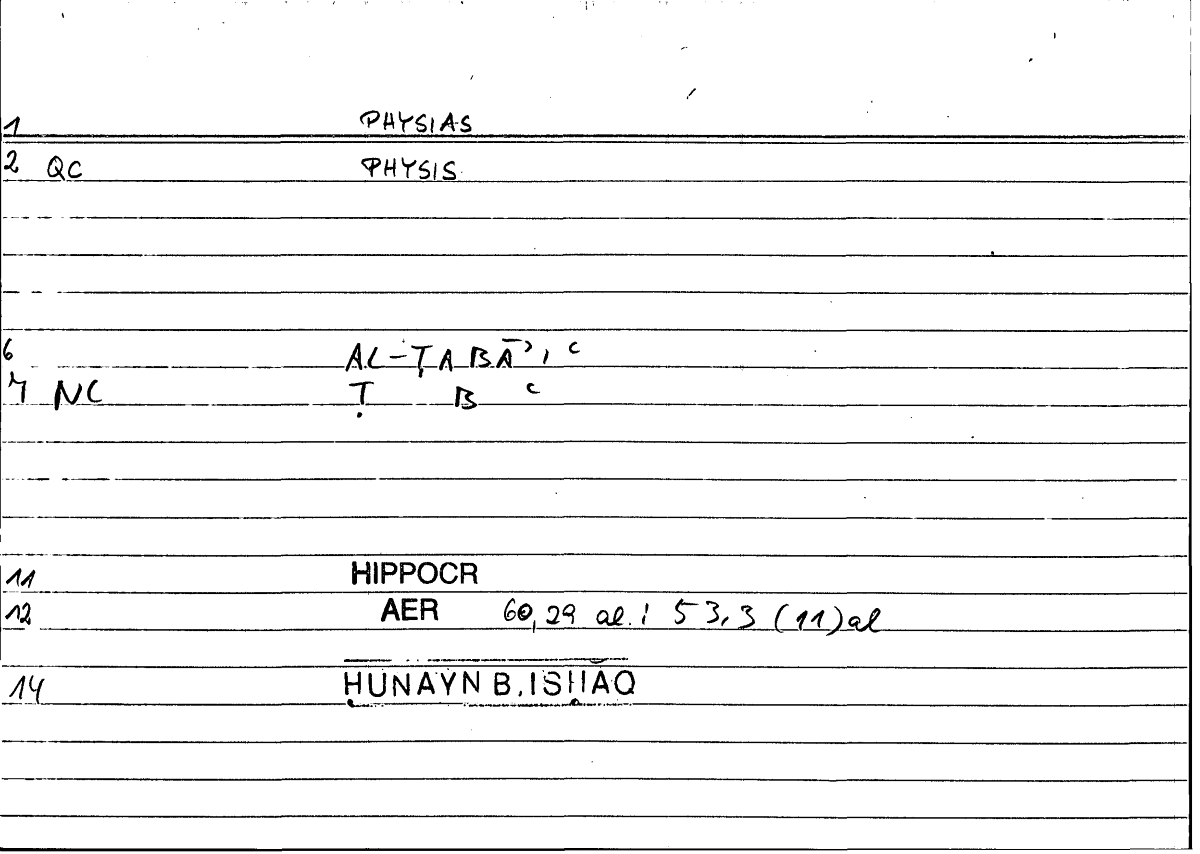 1 PHYSIAS
2 QC PHYSIS
6 AL-ṬABĀʾIʿ
7 NC Ṭ B ʿ
11 HIPPOCR
12 AER 60,29 al. ; 53,3 (11) al
14 ḤUNAYN B. ISḤĀQ